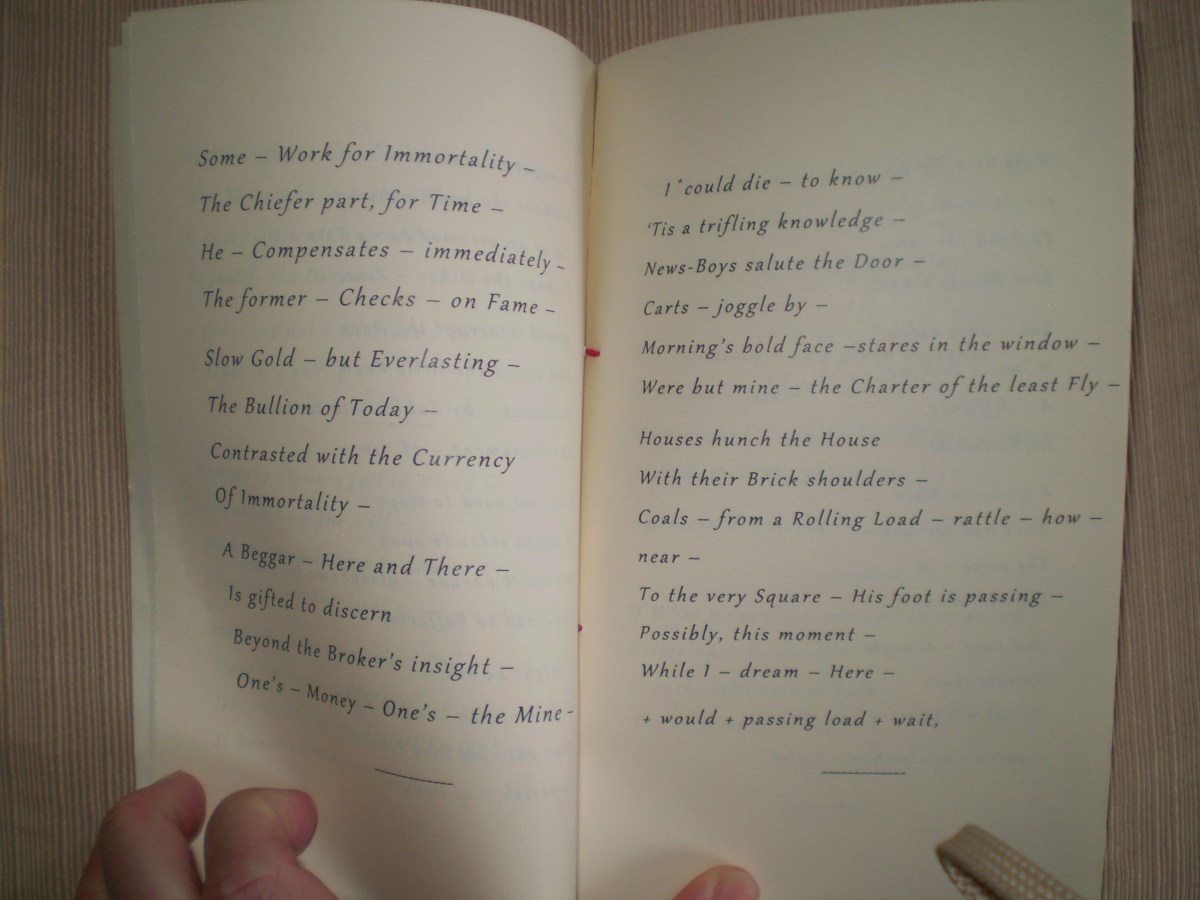 Some – Work for Immortality –
The Chiefer part, for Time –
He – Compensates – immediately –
The former – Checks – on Fame –
Slow Gold – but Everlasting –
The Bullion of Today –
Contrasted with the Currency
Of Immortality –
A Beggar – Here and There –
Is gifted to discern
Beyond the Broker's insight –
One's – Money – One's – the Mine -
I ⁺could die – to know –
'Tis a trifling knowledge –
News-Boys salute the Door –
Carts – joggle by –
Morning's bold face –stares in the window –
Were but mine – the Charter of the least Fly –
Houses hunch the House
With their Brick shoulders –
Coals – from a Rolling Load – rattle – how –
near –
To the very Square – His foot is passing –
Possibly, this moment –
While I – dream – Here –
+ would + passing load + wait,